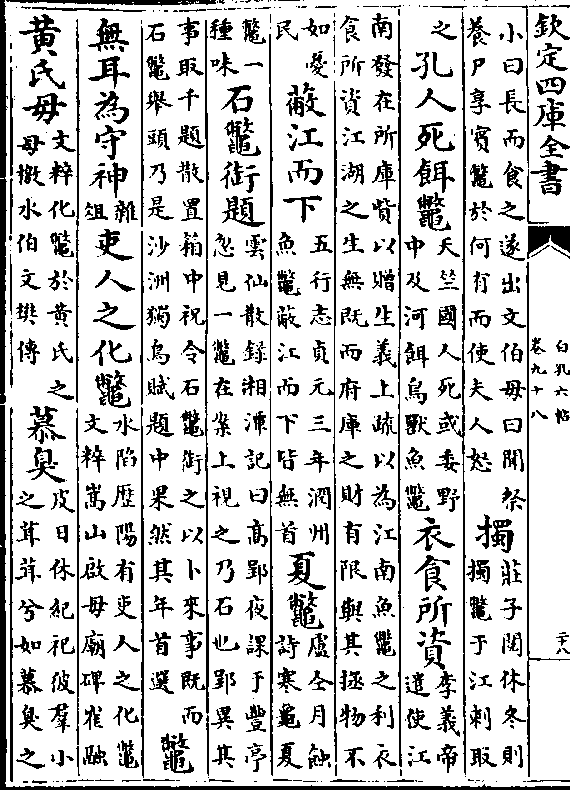 欽定四庫全書
白孔六帖
卷九十八
二十八
小曰長而食之遂出文伯母曰聞祭
養尸享賓鼈於何有而使夫人怒
擉
莊子閱休冬則
擉鼈于江刺取
之
孔人死餌鼈
天竺國人死或委野
中及河餌鳥獸魚鼈
衣食所資
李義帝
遣使江
南發在所庫貲以贈生義上疏以為江南魚鼈之利衣
食所資江湖之生無既而府庫之財有限與其拯物不
如憂
民
蔽江而下
五行志貞元三年潤州
魚鼈蔽江而下皆無首
夏鼈
盧仝月蝕
詩寒龜夏
鼈一
種味
石鼈銜題
雲仙散録湘潭記曰高郢夜課于豐亭
忽見一鼈在案上視之乃石也郢異其
事取千題散置箱中祝令石鼈銜之以卜來事既而
石鼈舉頭乃是沙洲獨鳥賦題中果然其年首選
鼈
無耳為守神
雜
俎
吏人之化鼈
水陷歴陽有吏人之化鼈
文粹嵩山啟母廟碑崔融
黄氏母
文粹化鼈於黄氏之
母撤水伯文樊傳
慕臭
皮日休紀祀彼羣小
之茸茸兮如慕臭之